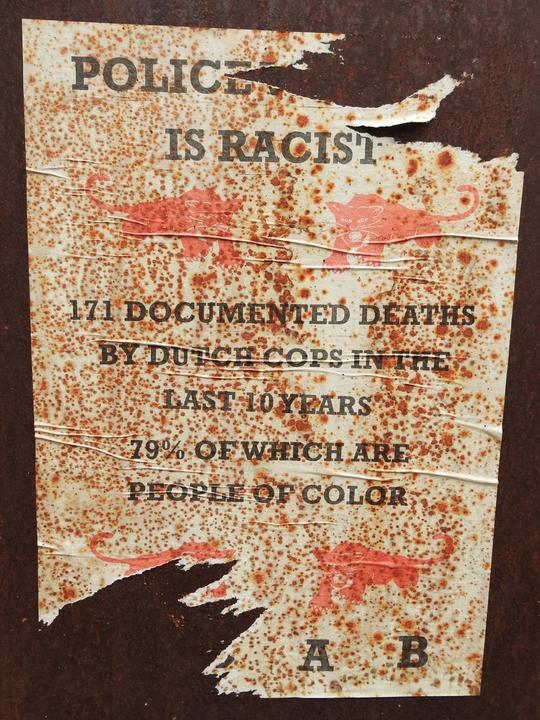 POLICE
IS RACIST
171 DOCUMENTED DEATHS
BY DUTCH COPS IN THE
LAST 10 YEARS
79% OF WHICH ARE
PEOPLE OF COLOR
A B